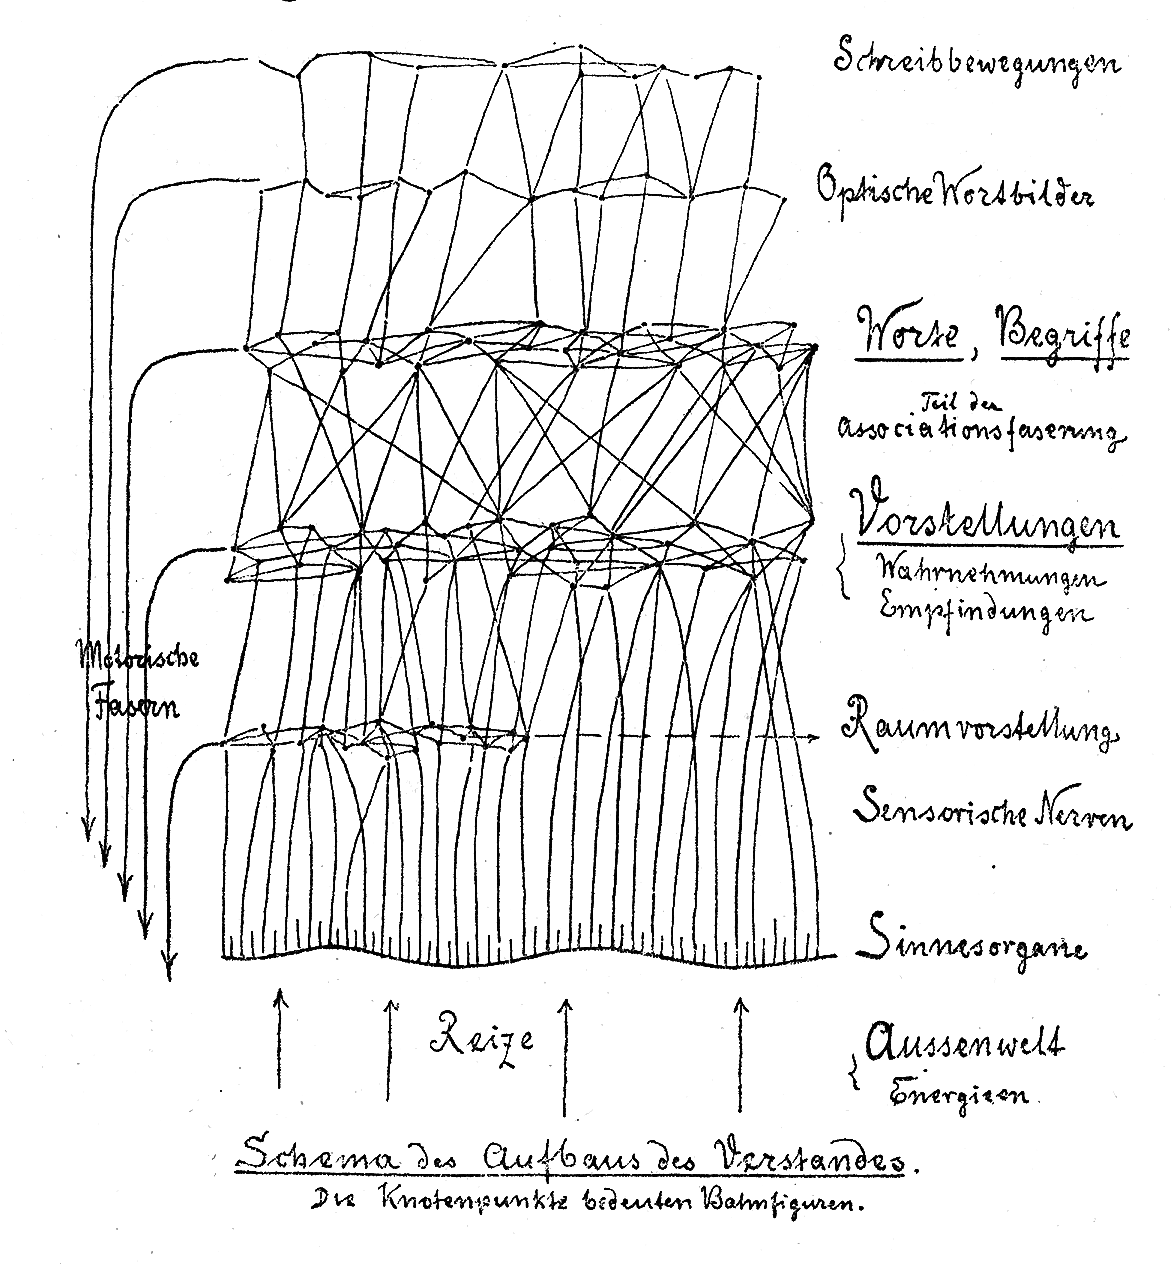 Schreibbewegungen
Optische Wortbilder
Worte, Begriffe
Teil der
Associationsfaserung
Vorstellungen
Wahrnehmungen
Empfindungen
Motorische
Fasern
Raumvorstellung
Sensorische Nerven
Sinnesorgane
Reize
Aussenwelt
Energieen
Schema des Aufbaus des Verstandes.
Die Knotenpunkte bedeuten Bahnfiguren.